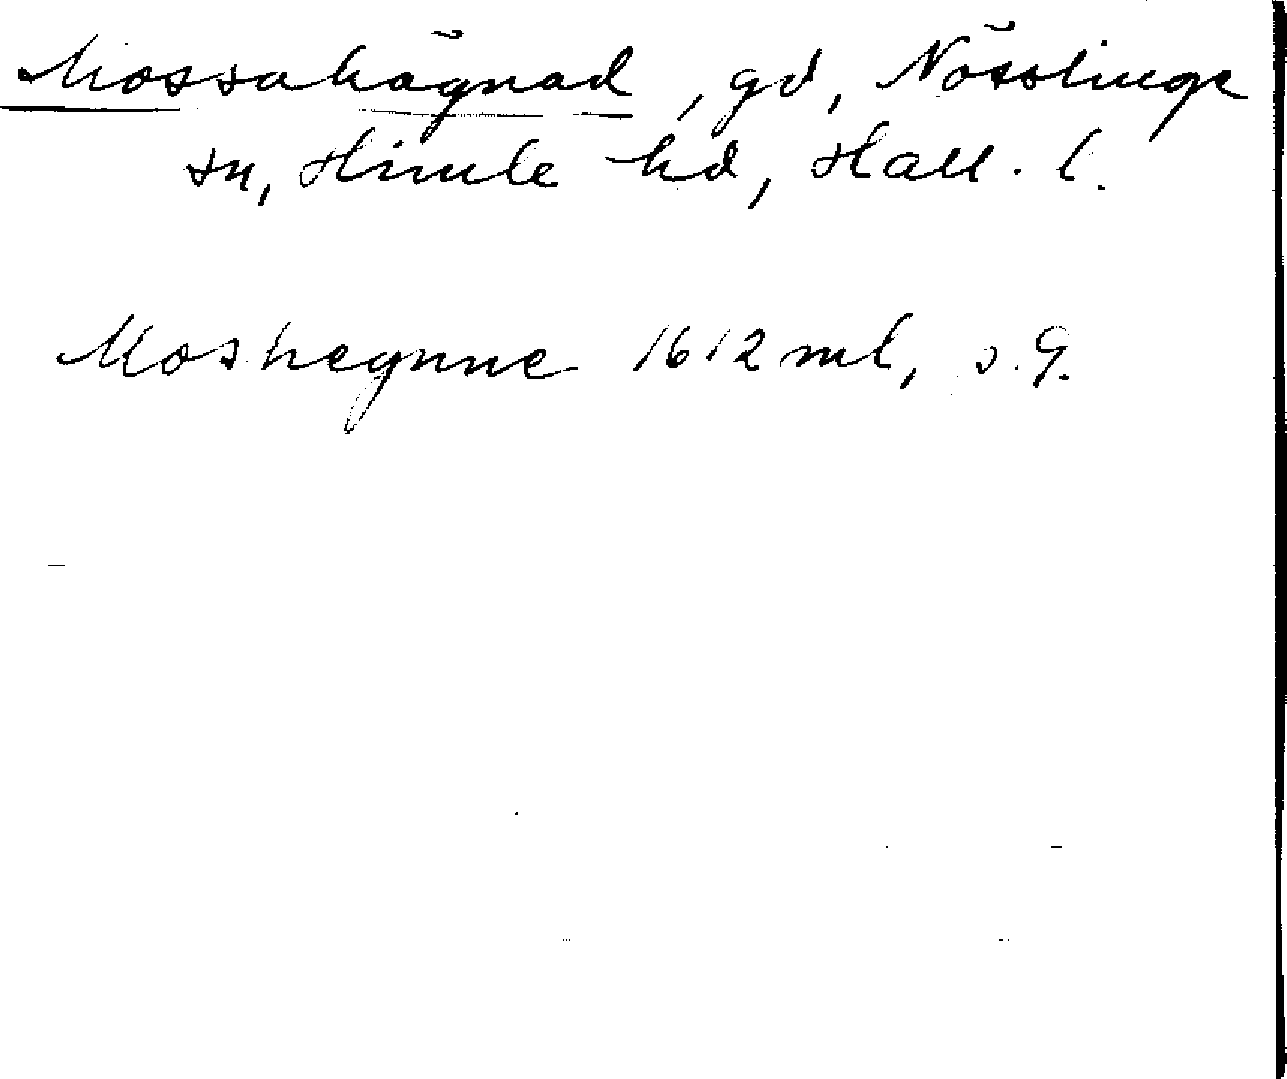 Mossahägnad, gd, Nösslinge
sn, Himle hd, Hall. l.
Moshegnne 1612 ml, s. 9.